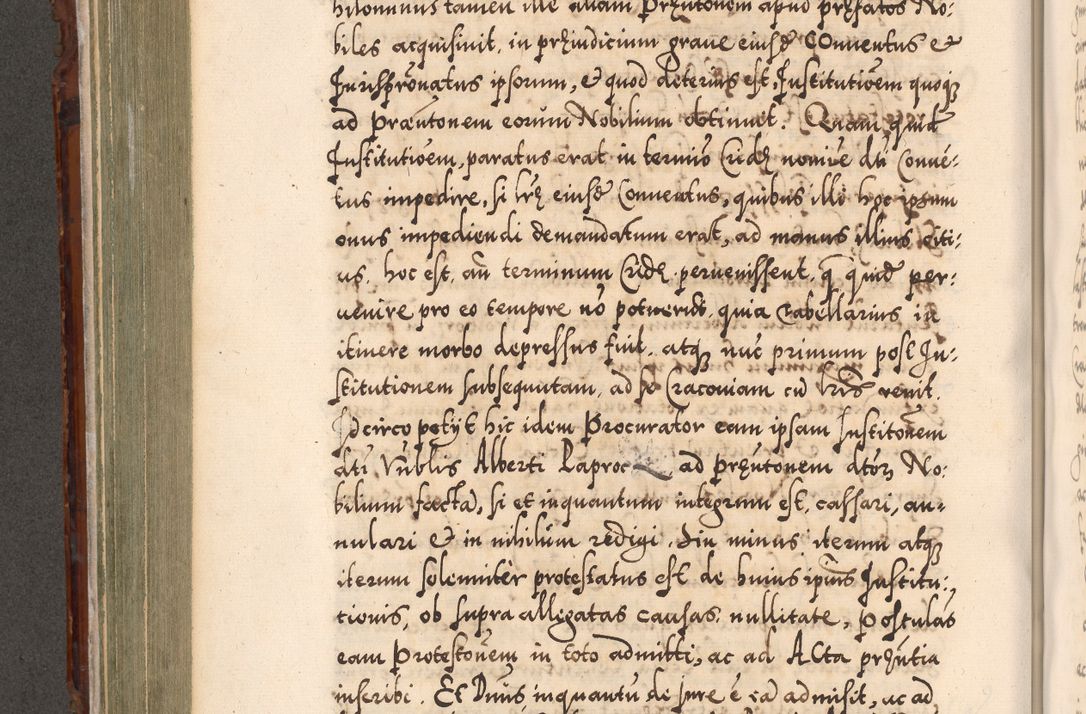 hilominus tamen ille aliam Pręntõnem apud pręfatos No:
biles acquisivit, in pręiudicium grave eiusdẽ COnventus et
Jurisprõnatus ipsorum, et quod deterius est, Justitutiõem quoqz
ad Præntonem eorum Nobilium obtinuit. Quam quidẽ
Justitutiõem, paratus erat in termĩo Crid₃ nomĩe dti Convẽ:
tus impedire, si lrę eiusdẽ Conventus, quibus illi hoc ipsum
onus impediendi demandatum erat, ad manus illius citi:
us, hoc est, añ terminum Cridę pervenissent. q̃ quidẽ per:
venire pro eo tempore nõ potuerũt, quia Tabellarius in
itinere morbo depressus fuit. atqz nũc primum post Ju:
stitutionem subsequutam, ad se Cracoviam cũ lr̃is venit.
Idcirco petyt hic idem Procurator eam ipsam Justitõnem
dti Vñblis Alberti Paproc ad Pręntonem dtoȝ No:
bilium factã, si et inquantum integrum est, cassari, an-
nulari et in nihilum redigi. sin minus iterum atqz
iterum solemniter protestatus est de huius ipsius Justitu:
tionis, ob supra allegatas causas, nullitate, Postulãs
eam Protestõnem in toto admitti, ac ad Acta pręntia
inseribi. Et Dñus inquantũ de jure ẽ eã admisit, ac ad